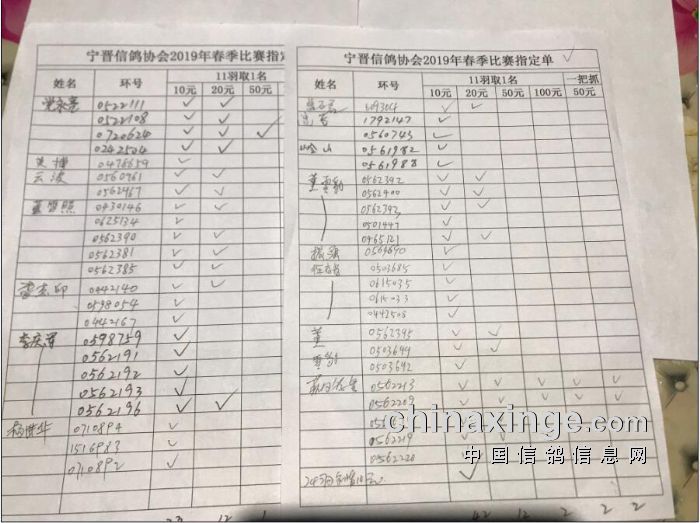 宁晋信鸽协会2019年春季比赛指定
姓名 环号 11羽取1名
10元 20元 50元
0522111 ✓ ✓
0522108 ✓ ✓
0720624 ✓ ✓ ✓
0242504 ✓ ✓
0476659 ✓
云波 0560961 ✓ ✓
0562967 ✓ ✓
0430146 ✓ ✓
0625134 ✓
0562390 ✓ ✓
0562381 ✓ ✓
0562385 ✓ ✓
0442140 ✓ ✓
0598054 ✓
0442167 ✓
李庆军 0598759 ✓
0562191 ✓
0562192 ✓
0562193 ✓
0562196 ✓ ✓
0710894 ✓
1516983 ✓
0710892 ✓
23 12 1
宁晋信鸽协会2019年春季比赛指定单 ✓
姓名 环号 11羽取1名 一把抓
10元 20元 50元 100元 50元
✓ ✓
1792147 ✓
0560743 ✓
0561982 ✓
0561988 ✓
0562392 ✓ ✓
0562400 ✓ ✓
0562392 ✓ ✓
0501447 ✓
0465121 ✓ ✓
0569690 ✓
0503685 ✓
0615035 ✓
0615033 ✓
0442508 ✓
董 0562395 ✓ ✓
0503649 ✓ ✓
0503692 ✓
0562213 ✓ ✓ ✓ ✓ ✓
0562209 ✓ ✓ ✓ ✓ ✓
0562219
0562220
✓
42 12 2 2 2
chinaxinge.com
中国信鸽信息网